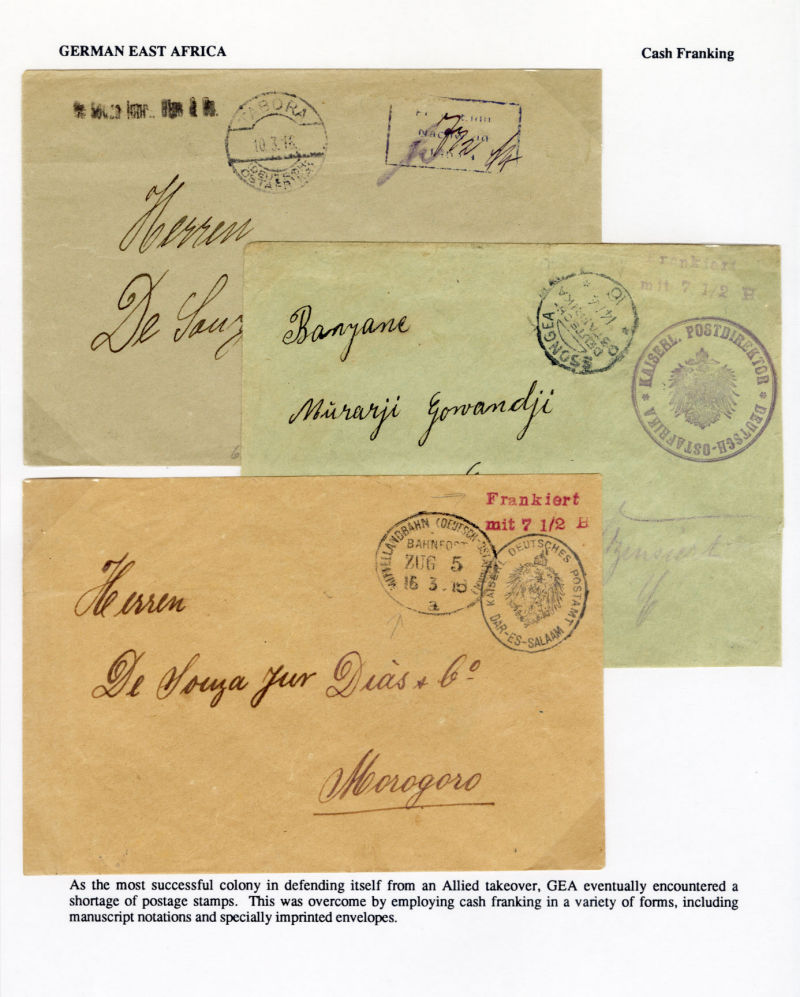 GERMAN EAST AFRICA
Cash Franking
De Souza Junr.. Dias & Co.
TABORA
10.3.16
DEUTSCH-
OSTAFRIKA
Herren
De Souz
Frankiert
mit 7 1/2 H
SONGEA
14/4
DEUTSCH-
OSTAFRIKA
KAISERL. POSTDIREKTOR
* DEUTSCH-OSTAFRIKA *
Banyane
Mūrarji Gowandji
Frankiert
mit 7 1/2 H
MITTELLANDBAHN (DEUTSCH-OSTAFRIKA)
BAHNPOST
ZUG 5
16 3.16
a
KAISERL. DEUTSCHES POSTAMT
DAR-ES-SALAAM
Herren
De Souza Jur Diàs & Co
Morogoro
As the most successful colony in defending itself from an Allied takeover, GEA eventually encountered a
shortage of postage stamps. This was overcome by employing cash franking in a variety of forms, including
manuscript notations and specially imprinted envelopes.